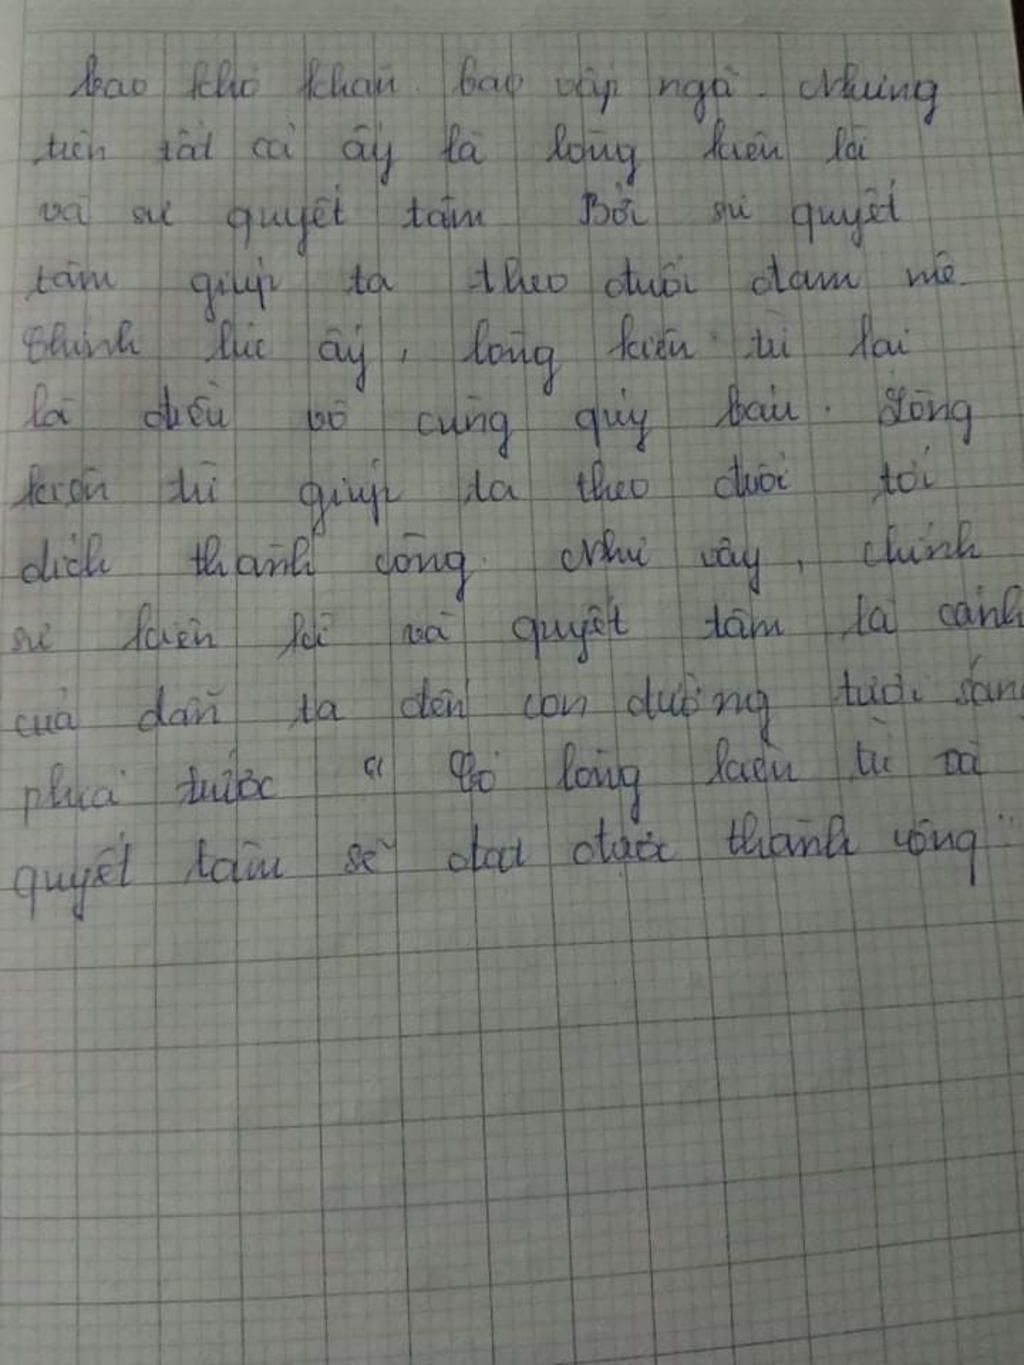 bao khó khăn. bao vấp ngã. Nhưng
trên tất cả ấy là lòng kiên
và sự quyết tâm Bởi sự quyết
tâm giúp ta theo đuổi đam mê.
Chính lúc ấy, lòng kiên trì lại
là điều vô cùng quý báu. Lòng
kiên trì giúp ta theo đuổi tới
đích thành công. Như vậy, chính
sự kiên trì và quyết tâm là cánh
cửa dẫn ta đến con đường tươi sáng
phía trước " Có lòng kiên trì và
quyết tâm sẽ đạt được thành công "